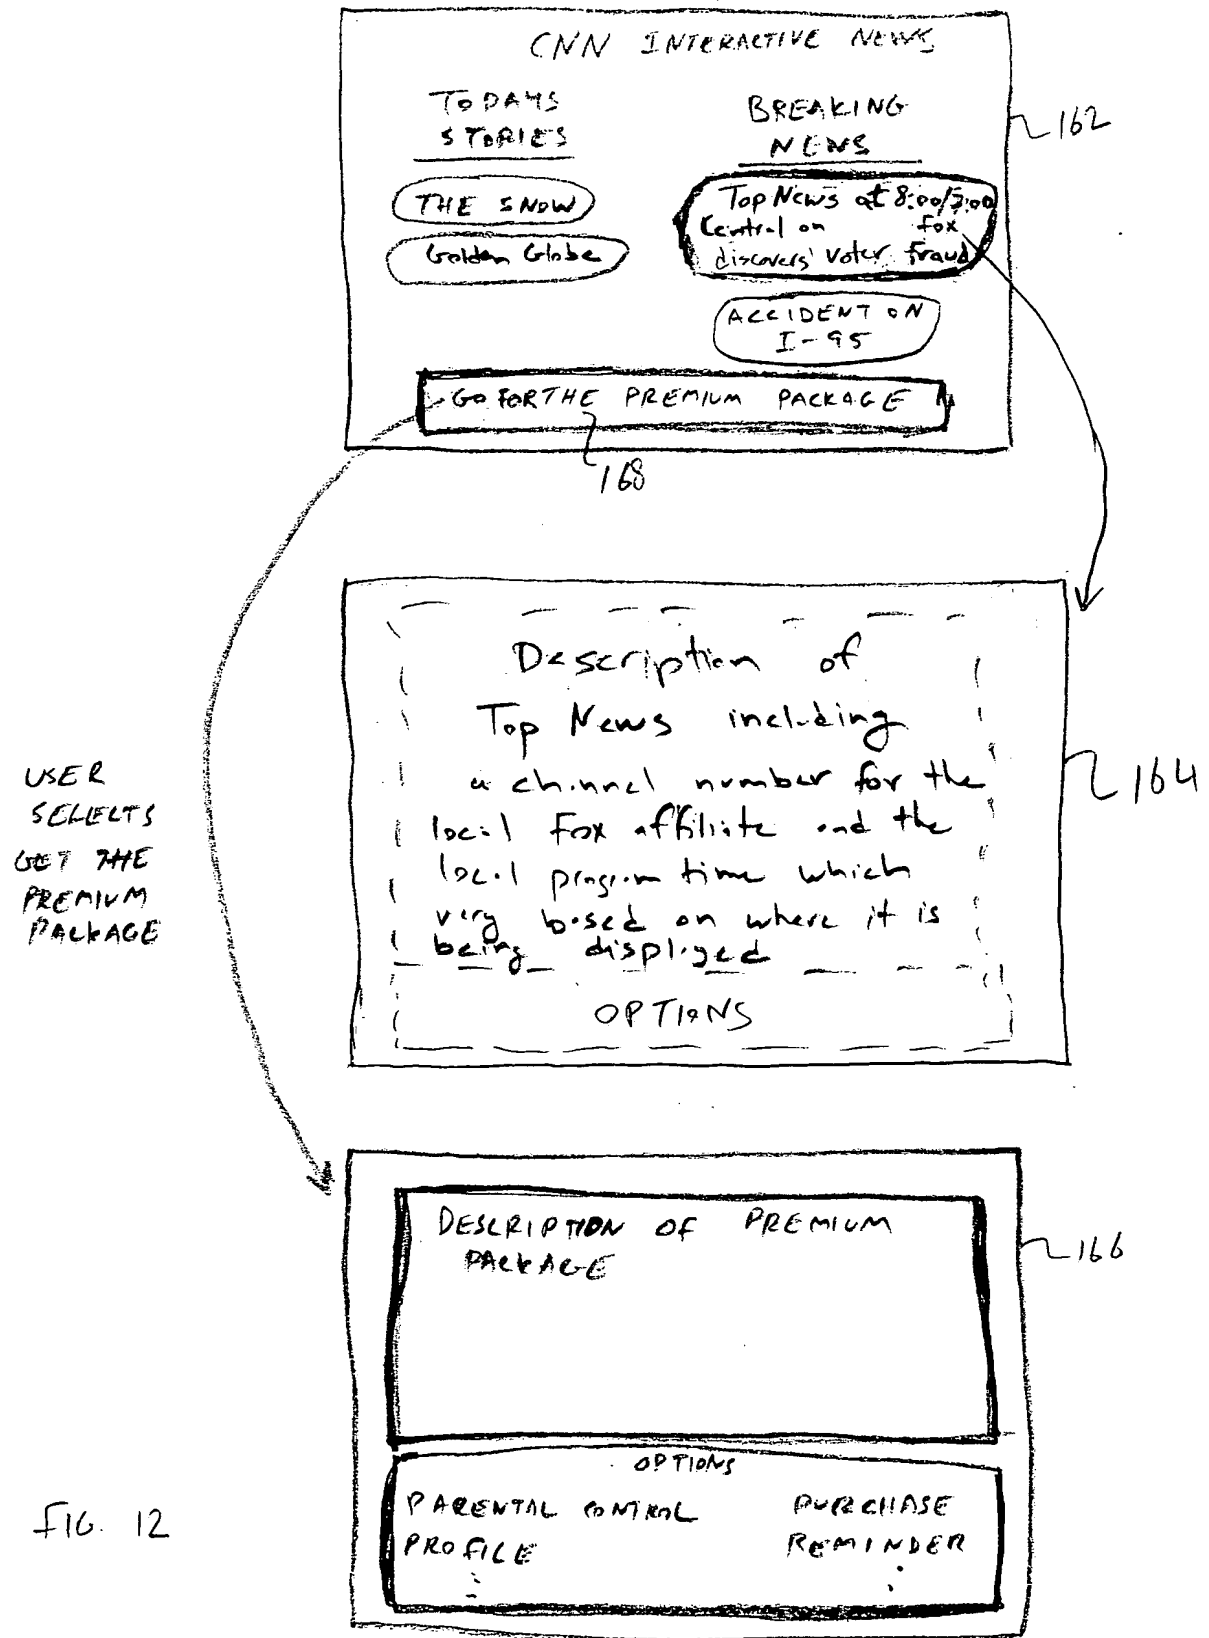 CNN INTERACTIVE NEWS
TODAYS
STORIES
THE SNOW
Golden Globe
BREAKING
NEWS
Top News at 8:00/7:00
Central on Fox
discovers' voter fraud
ACCIDENT ON
I-95
GO FOR THE PREMIUM PACKAGE
162
168
Description of
Top News including
a channel number for the
local Fox affiliate and the
local program time which
very based on where it is
being displayed
OPTIONS
164
USER
SELECTS
GET THE
PREMIUM
PACKAGE
DESCRIPTION OF PREMIUM
PACKAGE
166
OPTIONS
PARENTAL CONTROL
PROFILE
PURCHASE
REMINDER
FIG. 12